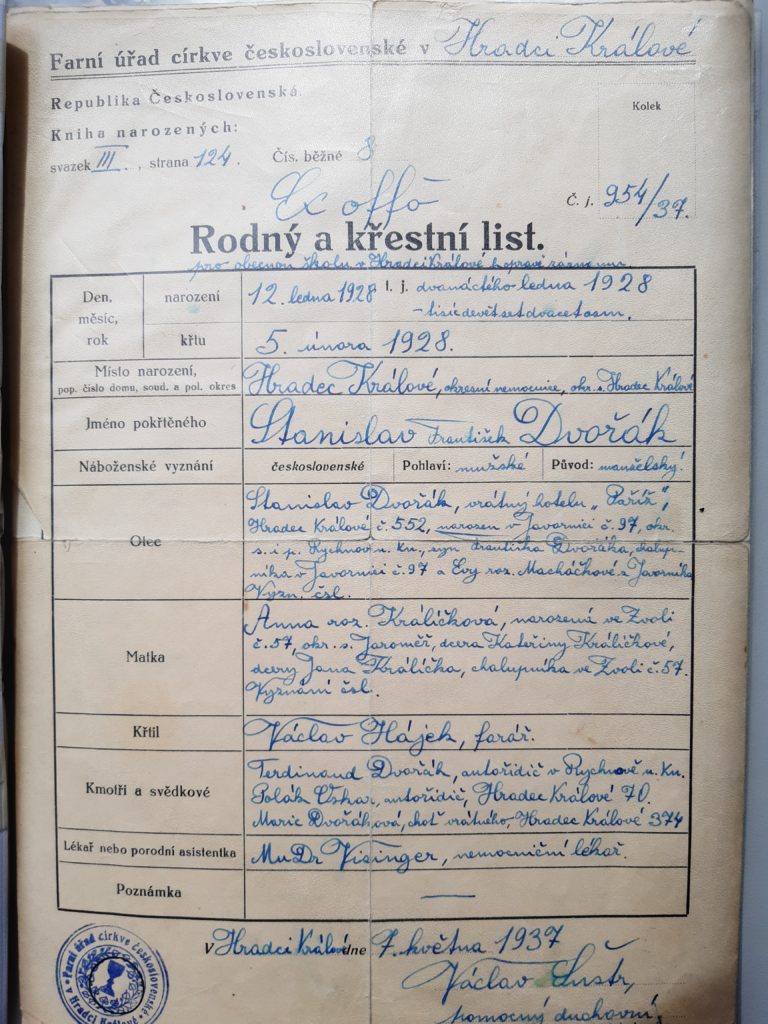 Farní úřad církve československé v Hradci Králové
Republika Československá.
Kolek
Kniha narozených:
svazek III., strana 124. Čís. běžné 8
Ex offo
Č. j. 954/37.
Rodný a křestní list.
pro obecnou školu v Hradci Králové k opravě záznamu
Den, měsíc, rok
narození
12. ledna 1928 t. j. dvanáctého ledna 1928
- tisíc devět set dvacet osm.
křtu
5. února 1928.
Místo narození,
pop. číslo domu, soud. a pol. okres
Hradec Králové, okresní nemocnice, okr. s. Hradec Králové
Jméno pokřtěného
Stanislav František Dvořák
Náboženské vyznání československé Pohlaví: mužské Původ: manželský.
Otec
Stanislav Dvořák, vrátný hotelu „Paříž",
Hradec Králové č. 552, narozen v Javornici č. 97, okr.
s. i p. Rychnov n. Kn., syn Františka Dvořáka, chalup-
níka v Javornici č. 97 a Evy roz. Macháčkové z Javorníka
Vyzn. čsl.
Matka
Anna roz. Králíčková, narozená ve Zvoli
č. 57, okr. s. Jaroměř, dcera Kateřiny Králíčkové,
dcery Jana Králíčka, chalupníka ve Zvoli č. 57.
Vyznání čsl.
Křtil
Václav Hájek, farář.
Kmotři a svědkové
Ferdinand Dvořák, autořidič v Rychnově n. Kn.
Polák Oskar, autořidič, Hradec Králové 70.
Marie Dvořáková, choť vrátného, Hradec Králové 374
Lékař nebo porodní asistentka
MuDr Visinger, nemocniční lékař.
Poznámka
V Hradci Králové dne 7. května 1937
Václav Šustr,
pomocný duchovní.
Farní úřad církve československé v Hradci Králové